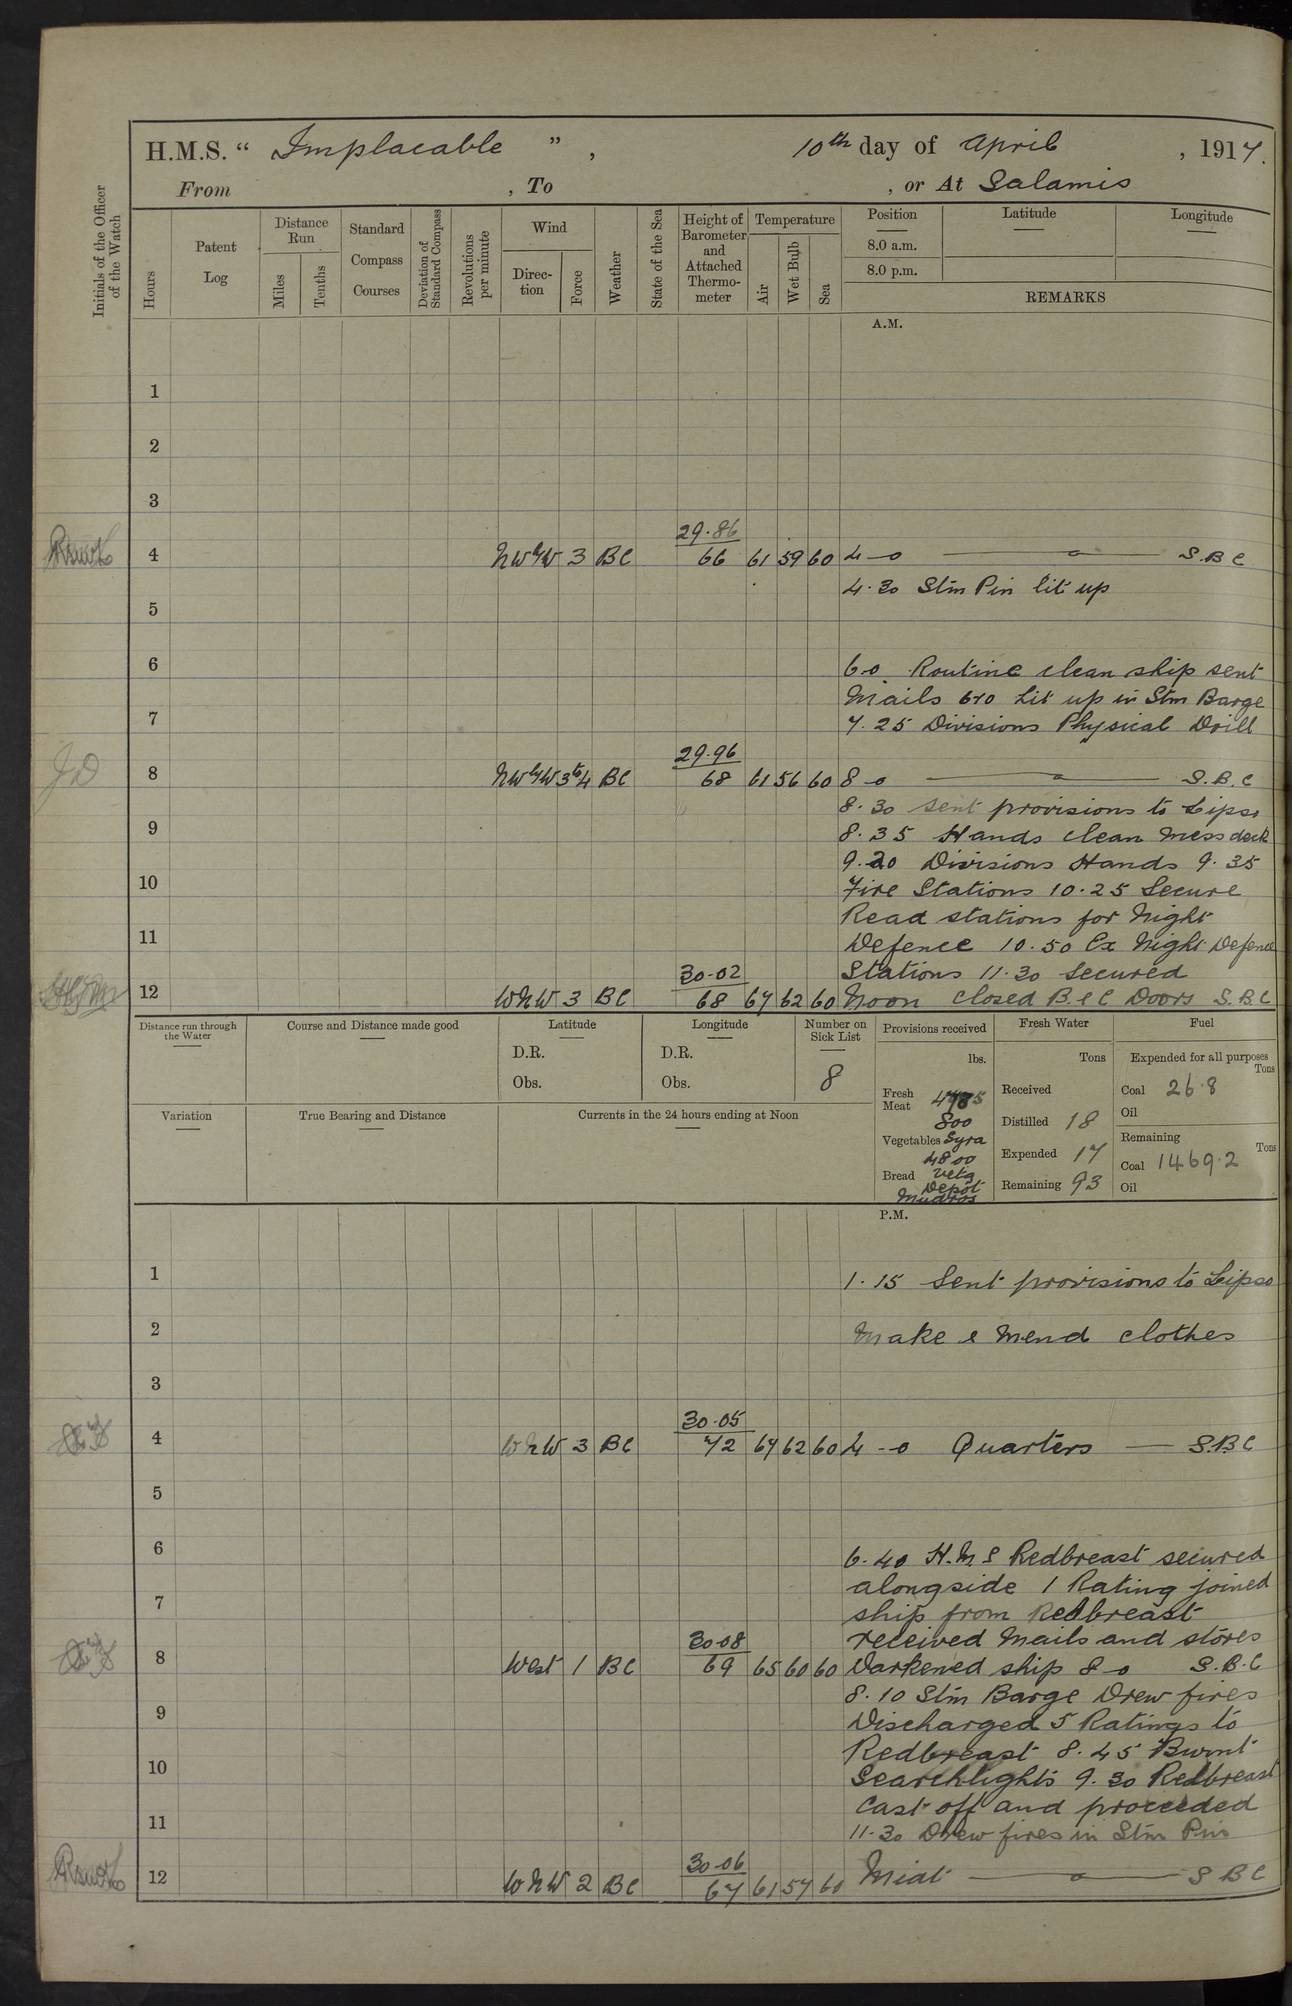 H.M.S. " Implacable ", 10th day of April, 1917.
From , To , or At Salamis
Initials of the Officer of the Watch
Hours
Patent Log
Distance Run
Miles
Tenths
Standard Compass Courses
Deviation of Standard Compass
Revolutions per minute
Wind
Direc-tion
Force
Weather
State of the Sea
Height of Barometer and Attached Thermo-meter
Temperature
Air
Wet Bulb
Sea
Position Latitude Longitude
8.0 a.m.
8.0 p.m.
REMARKS
A.M.
1
2
3
29.86
4 NWbyW 3 BC 66 61 59 60 4-0 S.B.C
4.30 Stm Pin lit up
5
6 6.0 Routine clean ship sent
Mails 6.40 Lit up in Stm Barge
7 7.25 Divisions Physical Drill
29.96
8 NWbyW 3to4 BC 68 61 56 60 8-0 S.B.C
8.30 sent provisions to Lipso
9 8.35 Hands clean Messdeck
9.20 Divisions Hands 9.35
10 Fire Stations 10.25 Secure
Read stations for Night
11 Defence 10.50 Ex Night Defence
30.02 Stations 11.30 Secured
12 WNW 3 BC 68 67 62 60 Noon closed B & C Doors S.B.C
Distance run through the Water
Course and Distance made good
Latitude
D.R.
Obs.
Longitude
D.R.
Obs.
Number on Sick List
8
Variation
True Bearing and Distance
Currents in the 24 hours ending at Noon
Provisions received
lbs.
Fresh Meat
800
Vegetables Syra
4800
Bread Vetg
Depôt
Mudros
Fresh Water
Tons
Received
Distilled 18
Expended 17
Remaining 93
Fuel
Expended for all purposes
Tons
Coal 26.8
Oil
Remaining
Tons
Coal 1469.2
Oil
P.M.
1 1.15 Sent provisions to Lipso
2 Make & Mend clothes
3
30.05
4 WNW 3 BC 72 67 62 60 4-0 Quarters S.B.C
5
6 6.40 H.M.S Redbreast secured
alongside 1 Rating joined
7 ship from Redbreast
30.08 received Mails and stores
8 West 1 BC 69 65 60 60 Darkened ship 8-0 S.B.C
8.10 Stm Barge Drew fires
9 Discharged 5 Ratings to
Redbreast 8.45 Burnt
10 Searchlights 9.30 Redbreast
cast off and proceeded
11 11.30 Drew fires in Stm Pin
30.06
12 WNW 2 BC 67 61 57 60 Midt S B C